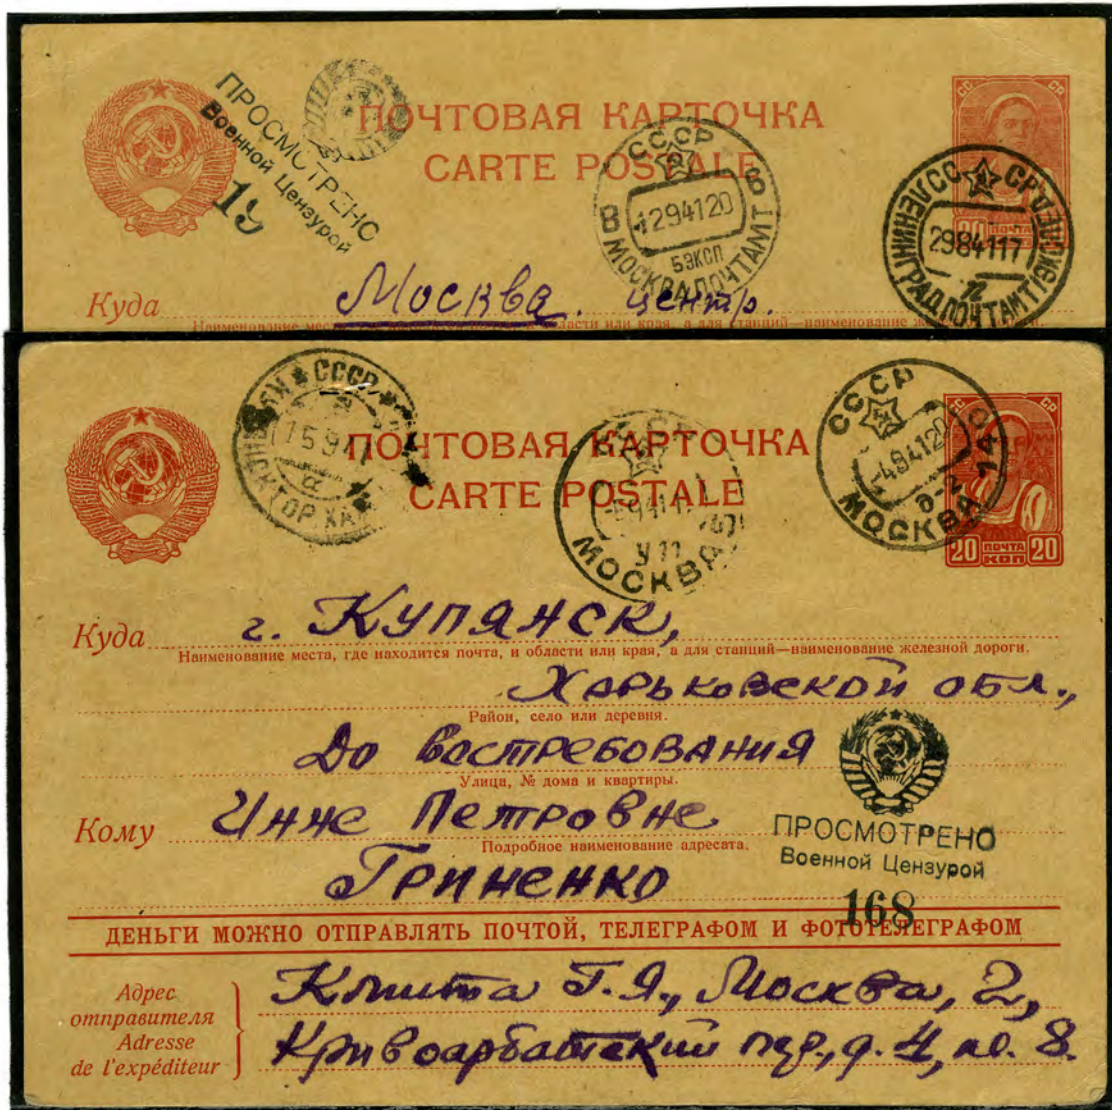 ПРОСМОТРЕНО
Военной Цензурой
19
ПОЧТОВАЯ КАРТОЧКА
CARTE POSTALE
СССР
В 1294120 8
5 ЭКСП
МОСКВА ПОЧТАМТ
СС СР
СССР
2984117
ЛЕНИНГРАД ПОЧТАМТ
Куда Москва. центр.
Наименование места, где находится почта, и области или края, а для станций—наименование железной дороги.
СССР
15941
ПОЧТОВАЯ КАРТОЧКА
CARTE POSTALE
МОСКВА
У11
СССР
494120
МОСКВА
СС СР
20 ПОЧТА КОП 20
Куда г. Купянск,
Наименование места, где находится почта, и области или края, а для станций—наименование железной дороги.
Харьковской обл.,
Район, село или деревня.
До востребования
Улица, № дома и квартиры.
Кому Инне Петровне
Подробное наименование адресата.
Гриненко
ПРОСМОТРЕНО
Военной Цензурой
168
ДЕНЬГИ МОЖНО ОТПРАВЛЯТЬ ПОЧТОЙ, ТЕЛЕГРАФОМ И ФОТОТЕЛЕГРАФОМ
Адрес
отправителя
Adresse
de l'expéditeur
Г.Я., Москва, 2,
Кривоарбатский пер., д. 4, кв. 8.